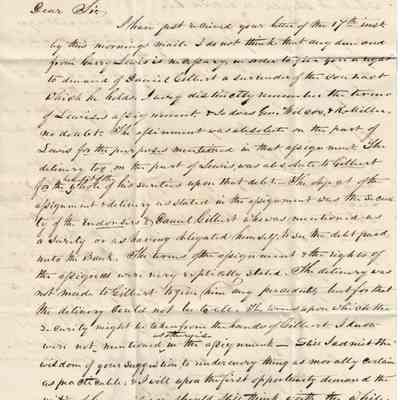 Dear Sir
I have just received your letter of the 17th inst
by this morning's mail. I do not think that any demand
from Lewis is necessary in order to give you a right
to demand of Daniel Gilbert a surrender of the contract
which he holds. I very distinctly remember the terms
of Lewis's assignment & so does Geo. Wilcox, &
no doubt. The assignment was absolute on the part of
Lewis for the purposes mentioned in that assignment. The
delivery too, on the part of Lewis was absolute to Gilbert
for the benefit of the whole of his sureties upon that debt. The object of the
assignment & delivery as stated in the assignment was the securi
ty of the endorsers & Daniel Gilbert who was mentioned as
a surety or as having obligated himself to see the debt paid
into the Bank. The terms of the assignment & the rights of
the assignees were very explicitly stated. The delivery was
not made to Gilbert to give him any precedents but for that
the delivery could not be to all. The terms upon which the
security might be taken from the hands of Gilbert I know
were not mentioned in the assignment — Still I admit the
wisdom of your suggestion to render every thing as morally certain
as practicable & I will upon the first opportunity demand the
should still think